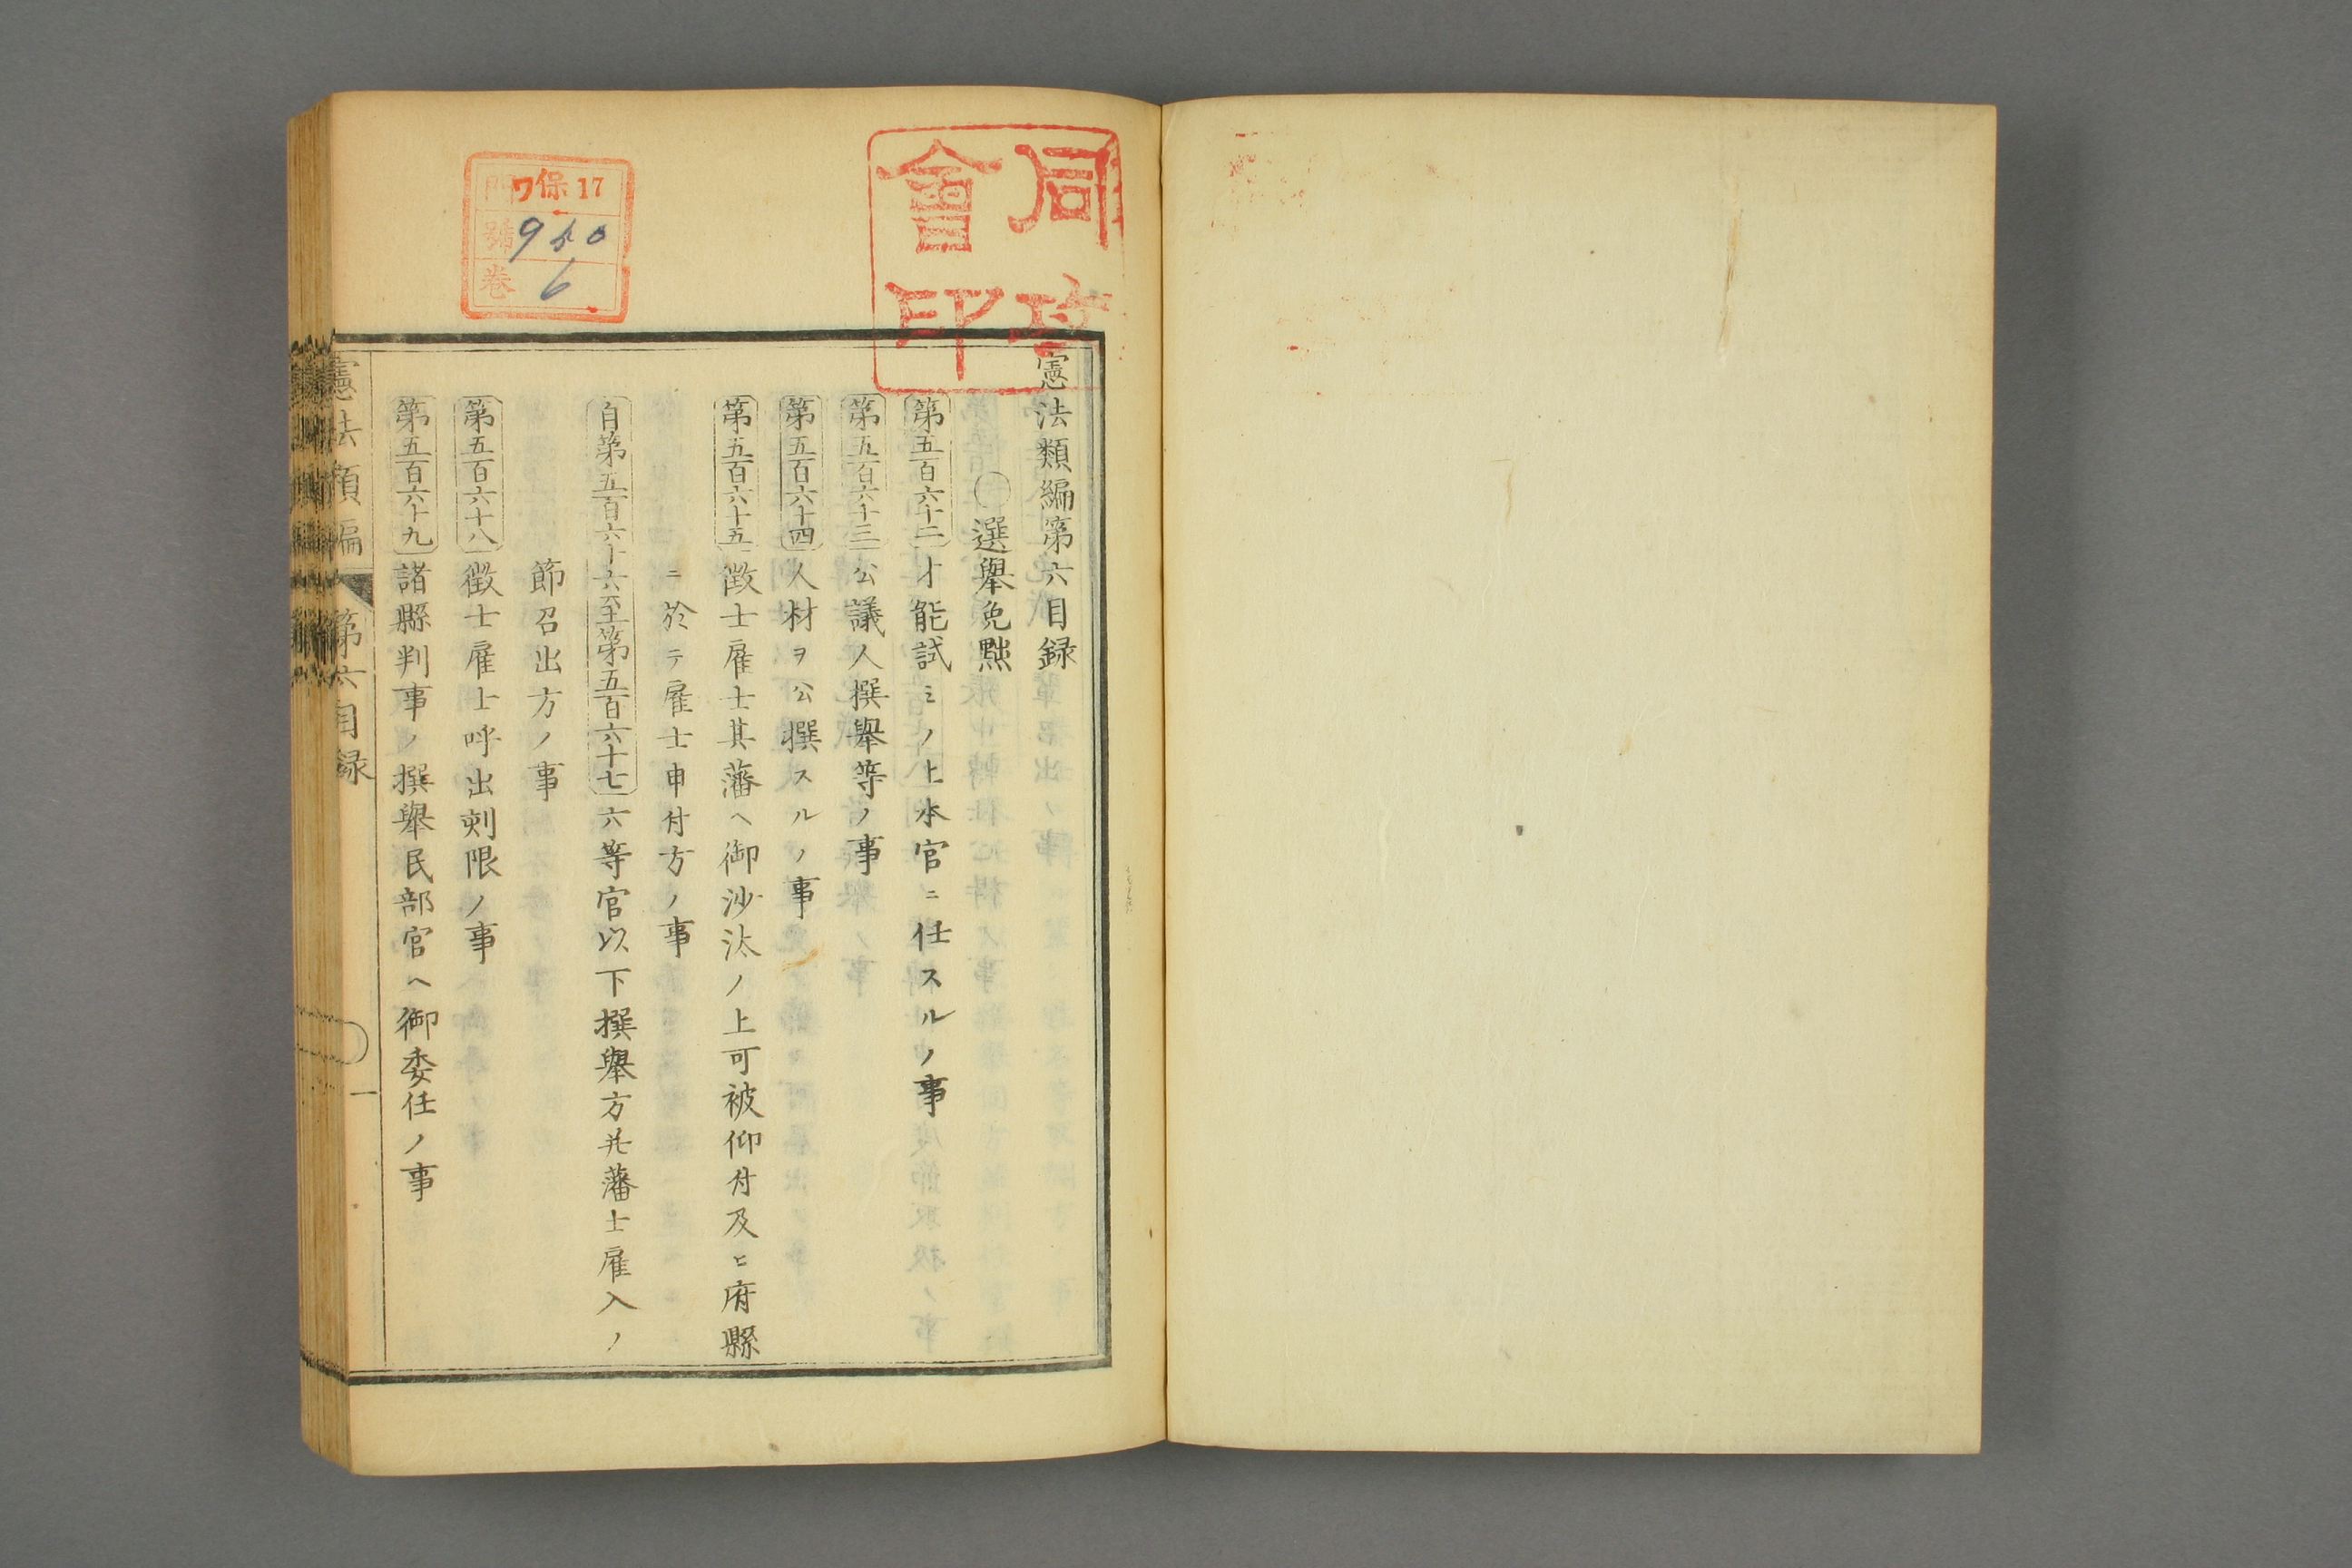 憲法類編第六目録
○選舉免黜
第五百六十二 才能試ミノ上本官ニ任スルノ事
第五百六十三 公議人撰舉等ノ事
第五百六十四 人材ヲ公撰スルノ事
第五百六十五 徴士雇士其藩ヘ御沙汰ノ上可被仰付及ヒ府縣
ニ於テ雇士申付方ノ事
自第五百六十六至第五百六十七 六等官以下撰舉方幷藩士雇入ノ
節召出方ノ事
第五百六十八 徴士雇士呼出刻限ノ事
第五百六十九 諸縣判事ノ撰舉民部官ヘ御委任ノ事
憲法類編 第六目録 一
同攻
會印
門 ワ保17
號 950
卷 6